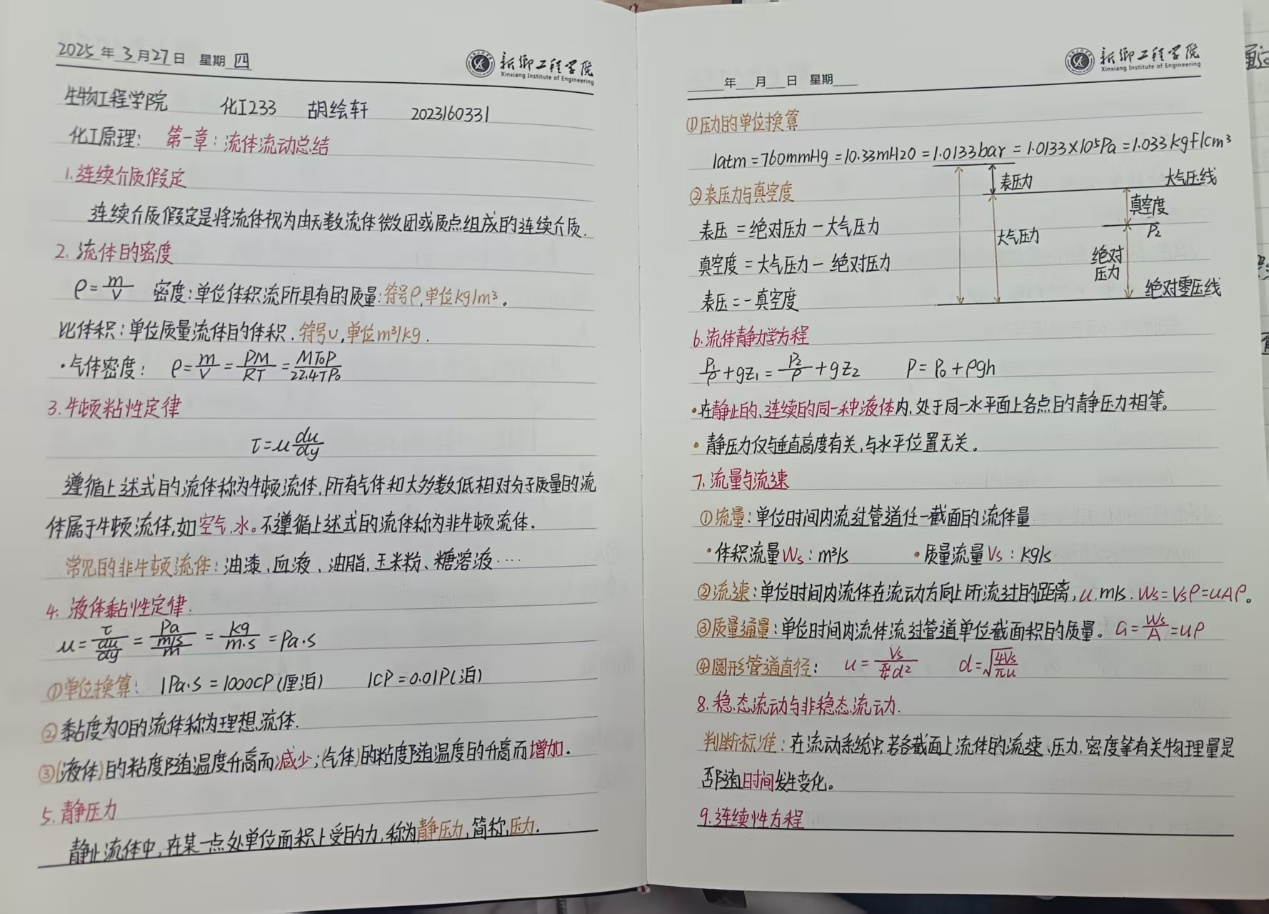 2025年3月27日 星期四
新乡工程学院
Xinxiang Institute of Engineering
生物工程学院 化工233 胡绘轩 202316033 1
化工原理: 第一章:流体流动总结
1.连续介质假定
连续介质假定是将流体视为由无数流体微团或质点组成的连续介质.
2.流体的密度
ρ=m/V 密度:单位体积流所具有的质量:符号ρ,单位kg/m³.
比体积:单位质量流体的体积.符号υ,单位m³/kg.
·气体密度: ρ=m/V=PM/RT=MT0P/22.4TP0
3.牛顿粘性定律
τ=u du/dy
遵循上述式的流体称为牛顿流体.所有气体和大多数低相对分子质量的流
体属于牛顿流体,如空气.水。不遵循上述式的流体称为非牛顿流体.
常见的非牛顿流体:油漆、血液、油脂,玉米粉、糖溶液····
4.液体黏性定律.
u=τ/(du/dy)=Pa/((m/s)/m)=kg/m·s=Pa·s
①单位换算: 1Pa·S=1000CP(厘泊) 1CP=0.01P(泊)
②黏度为0的流体称为理想流体.
③(液体)的粘度随温度升高而减少;(气体)的粘度随温度的升高而增加.
5.静压力
静止流体中,在某一点处单位面积上受的力,称为静压力,简称,压力.
年 月 日 星期
新乡工程学院
Xinxiang Institute of Engineering
①压力的单位换算
1atm=760mmHg=10.33mH20=1.0133bar=1.0133×10⁵Pa=1.033kgf/cm³
②表压力与真空度
表压=绝对压力-大气压力
真空度=大气压力-绝对压力
表压=-真空度
表压力
大气压线
真空度
P2
大气压力
绝对压力
绝对零压线
6.流体静力学方程
P1/ρ+gZ1=P2/ρ+gZ2 P=P0+ρgh
·在静止的,连续的同一种液体内,处于同一水平面上各点的静压力相等。
·静压力仅与垂直高度有关,与水平位置无关。
7.流量与流速
①流量:单位时间内流过管道任一截面的流体量
·体积流量Ws:m³/s ·质量流量Vs:kg/s
②流速:单位时间内流体在流动方向上所流过的距离,u.m/s.Ws=Vsρ=uAρ。
③质量通量:单位时间内流体流过管道单位截面积的质量。G=Ws/A=uρ
④圆形管道直径: u=Vs/(π/4 d²) d=√(4Vs/πu)
8.稳态流动与非稳态流动.
判断标准:在流动系统中,若各截面上流体的流速、压力,密度等有关物理量是
否随时间发生变化。
9.连续性方程